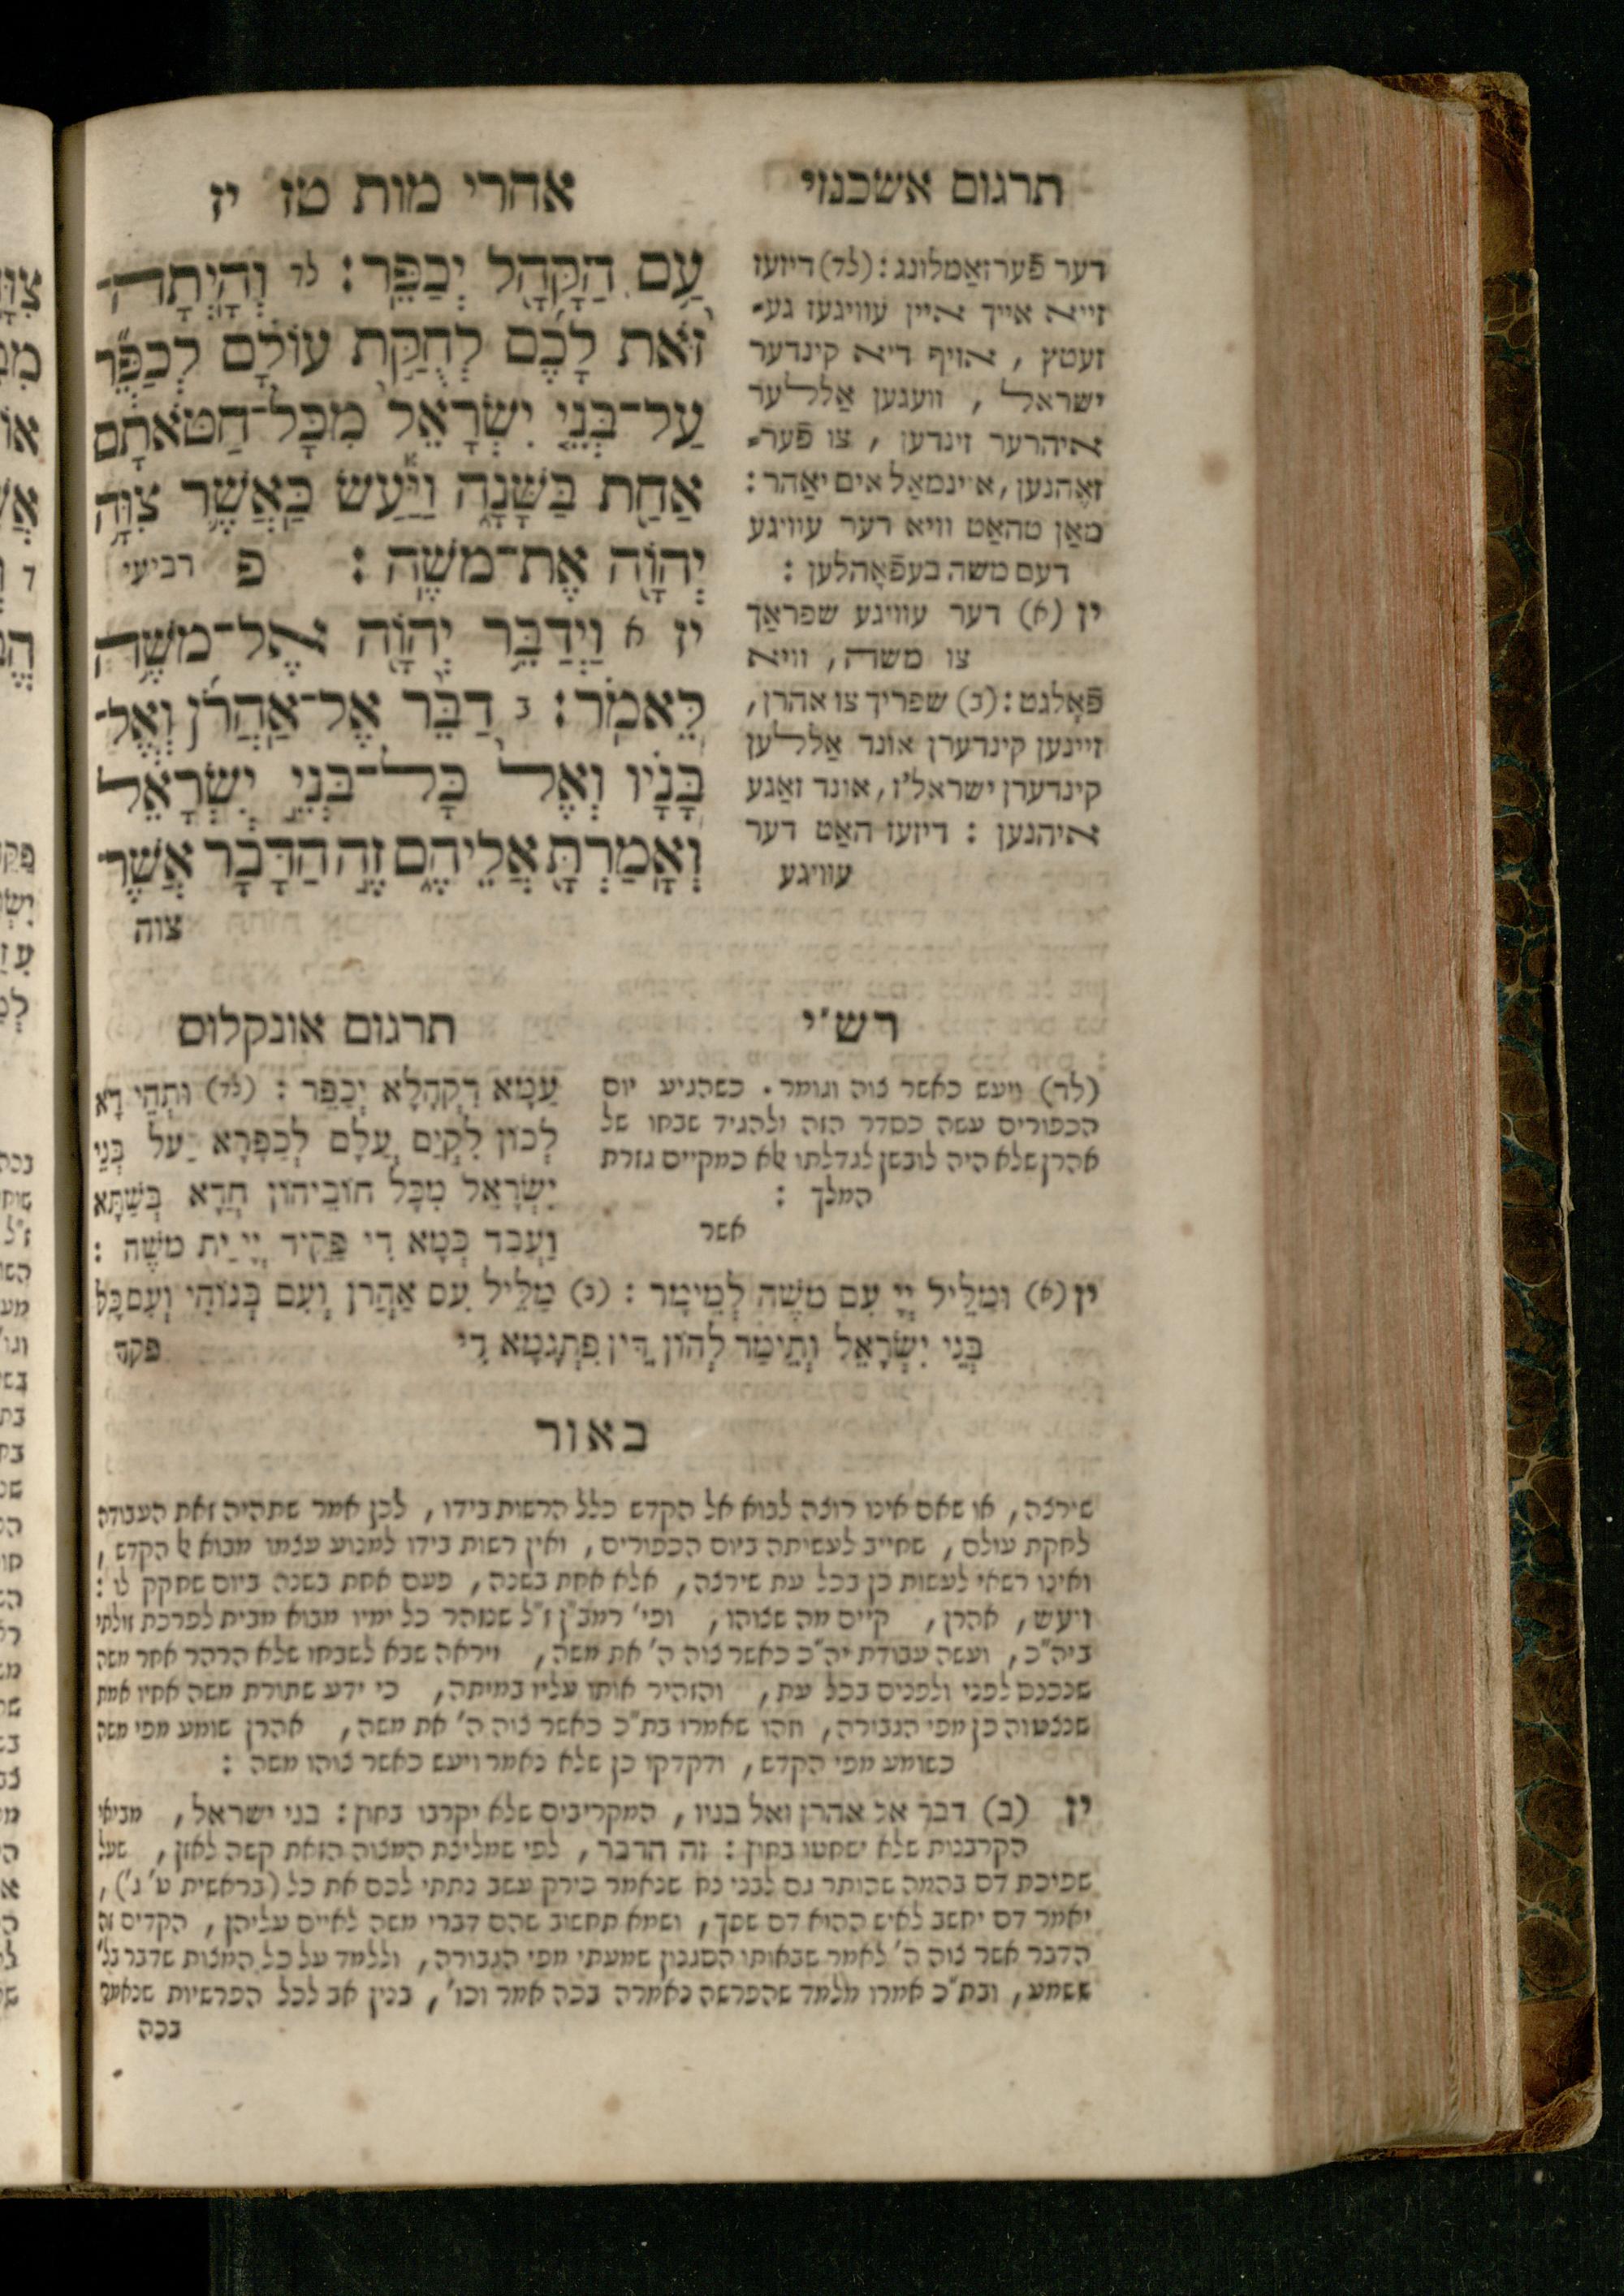 תרגום אשכנזי
אחרי מות טז יז
עַ֥ם הַקָּהָ֖ל יְכַפֵּֽר׃ לד וְהָֽיְתָה־
זֹּ֨את לָכֶ֜ם לְחֻקַּ֣ת עוֹלָ֗ם לְכַפֵּ֞ר
עַל־בְּנֵ֤י יִשְׂרָאֵל֙ מִכָּל־חַטֹּאתָ֔ם
אַחַ֖ת בַּשָּׁנָ֑ה וַיַּ֕עַשׂ כַּֽאֲשֶׁ֛ר צִוָּ֥ה
יְהוָֹ֖ה אֶת־מֹשֶֽׁה׃ פ רביעי
יז א וַיְדַבֵּ֥ר יְהוָֹ֖ה אֶל־מֹשֶׁ֥ה
לֵּאמֹֽר׃ ב דַּבֵּ֨ר אֶֽל־אַהֲרֹ֜ן וְאֶל־
בָּנָ֗יו וְאֶל֙ כָּל־בְּנֵ֣י יִשְׂרָאֵ֔ל
וְאָֽמַרְתָּ֖ אֲלֵיהֶ֑ם זֶ֣ה הַדָּבָ֔ר אֲשֶׁר
צוה
דער פֿערזאַמלונג: (לד) דיזעז
זייא אייך איין עוויגעז גע־
זעטץ, אויף דיא קינדער
ישראל, וועגען אַללער
איהרער זינדען, צו פֿער־
זאָהנען, איינמאַל אים יאַהר:
מאַן טהאַט וויא דער עוויגע
דעם משה בעפֿאָהלען:
יז (א) דער עוויגע שפראַך
צו משה, וויא
פֿאָלגט: (ב) שפריך צו אהרן,
זיינען קינדערן אונד אַללען
קינדערן ישראל'ז, אונד זאַגע
איהנען: דיזעז האַט דער
עוויגע
רש"י
(לד) ויעש כאשר צוה וגומר. כשהגיע יום
הכפורים עשה כסדר הזה ולהגיד שבחו של
אהרן שלא היה לובשן לגדלתו אלא כמקיים גזרת
המלך:
אשר
תרגום אונקלוס
עַמָּא דִקְהָלָא יְכַפֵּר: (לד) וּתְהֵי דָא
לְכוֹן לִקְיַם עֲלָם לְכַפָּרָא עַל בְּנֵי
יִשְׂרָאֵל מִכָּל חוֹבֵיהוֹן חֲדָא בְּשַׁתָּא
וַעֲבַד כְּמָא דִי פַקֵּיד יְיָ יַת משֶׁה:
יז (א) וּמַלֵּיל יְיָ עִם משֶׁה לְמֵימָר: (ב) מַלֵּיל עִם אַהֲרֹן וְעִם בְּנוֹהִי וְעִם כָּל
בְּנֵי יִשְׂרָאֵל וְתֵימַר לְהוֹן דֵּין פִּתְגָמָא דִי
פקד
באור
שירצה, או שאם אינו רוצה לבוא אל הקדש כלל הרשות בידו, לכן אמר שתהיה זאת העבודה
לחקת עולם, שחייב לעשיתה ביום הכפורים, ואין רשות בידו למנוע עצמו מבוא אל הקדש,
ואינו רשאי לעשות כן בכל עת שירצה, אלא אחת בשנה, פעם אחת בשנה ביום שחקק לו:
ויעש, אהרן, קיים מה שצוהו, ופי' רמב"ן ז"ל שנזהר כל ימיו מבוא מבית לפרכת זולתי
ביה"כ, ועשה עבודת יה"כ כאשר צוה ה' את משה, ויראה שבא לשבחו שלא הרהר אחר משה
שנכנס לפני ולפנים בכל עת, והזהיר אותו עליו במיתה, כי ידע שתורת משה אחיו אמת
שנצטוה כן מפי הגבורה, וזהו שאמרו בת"כ כאשר צוה ה' את משה, אהרן שומע מפי משה
כשומע מפי הקדש, ודקדקו כן שלא נאמר ויעש כאשר צוהו משה:
יז (ב) דבר אל אהרן ואל בניו, המקריבים שלא יקרבו בחוץ: בני ישראל, מביאי
הקרבנות שלא ישחטו בחוץ: זה הדבר, לפי שמליצת המצוה הזאת קשה לאזן, שעל
שפיכת דם בהמה שהותר גם לבני נח שנאמר כירק עשב נתתי לכם את כל (בראשית ט' ג'),
יאמר דם יחשב לאיש ההוא דם שפך, ושמא תחשוב שהם דברי משה לאיים עליהן, הקדים זה
הדבר אשר צוה ה' לאמר שבאותו הסגנון שמעתי מפי הגבורה, וללמד על כל המצות שדבר כל'
ששמע, ובת"כ אמרו מלמד שהפרשה נאמרה בכה אמר וכו', בנין אב לכל הפרשיות שנאמר
בכה